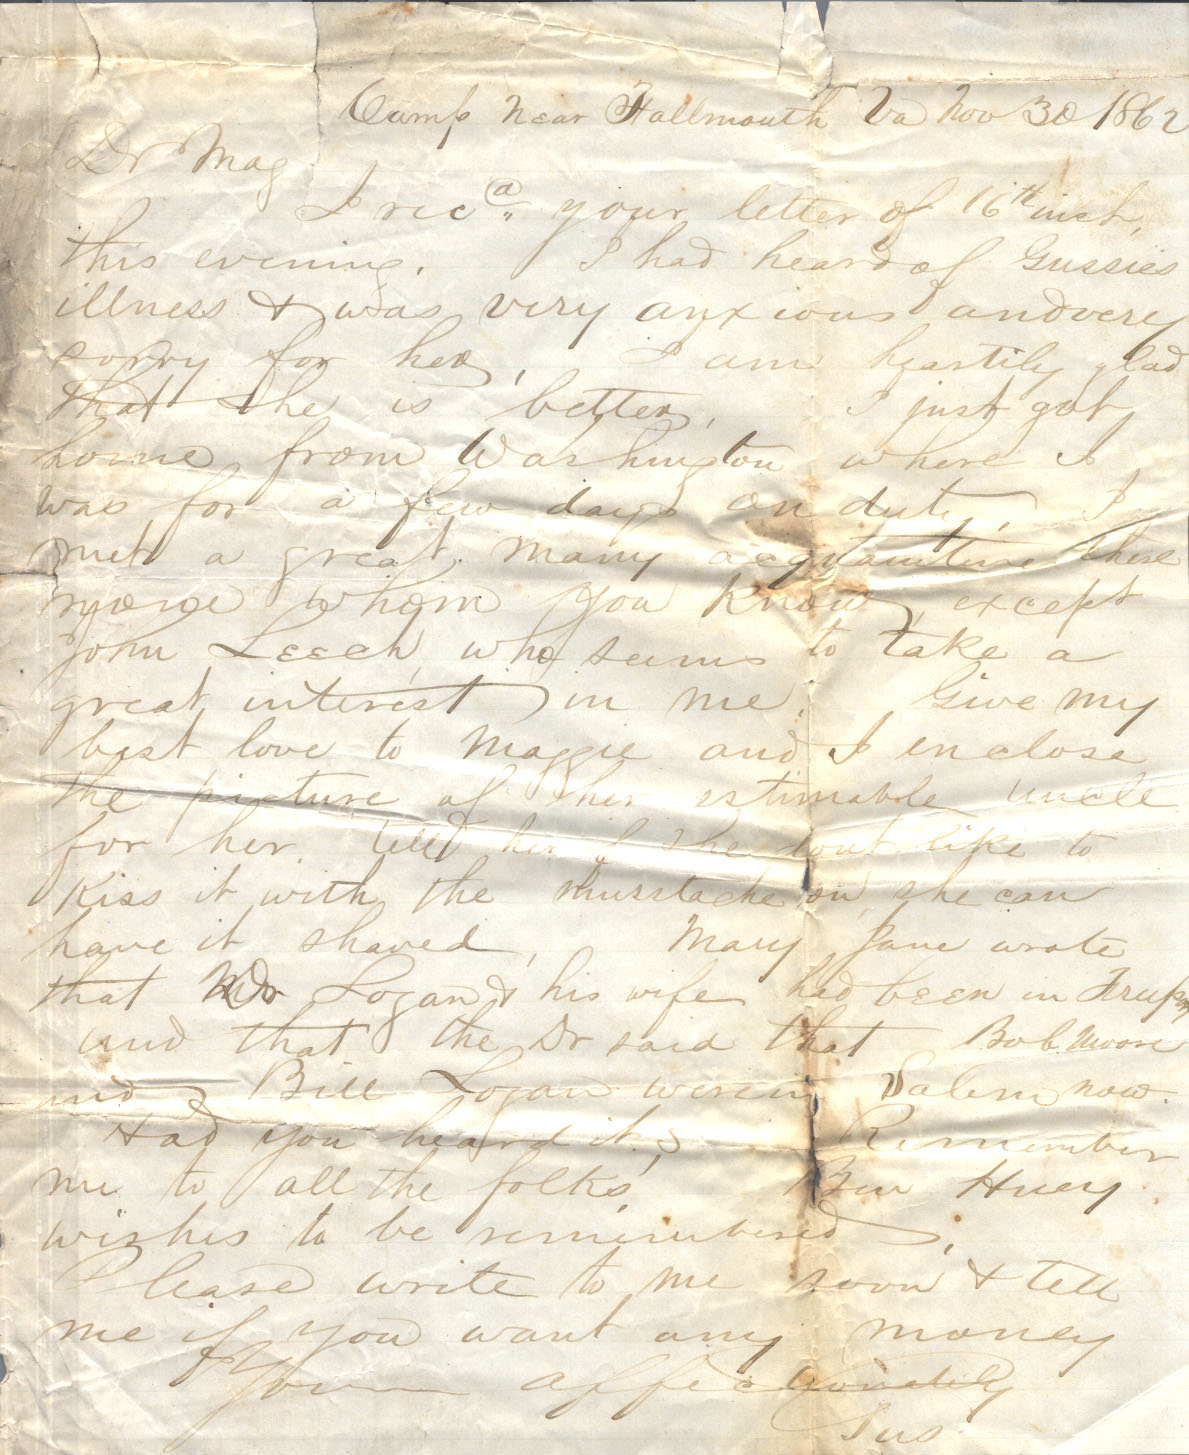 Camp Near Fallmouth Va Nov 30 1862
Dr Mag
I recd. your letter of 16th inst,
this evening. I had heard of Gussies
illness & was very anxious and very
sorry for her, I am heartily glad
that she is better, I just got
home from Washington where I
was for a few days on duty, I
met a great many acquaintance there
none whom you know, except
John Leech, who seems to take a
great interest in me. Give my
best love to Maggie and I enclose
the picture of her estimable uncle
for her. tell her if she dont like to
kiss it with the musstache on, she can
have it shaved, Mary Jane wrote
that Dr Logan & his wife had been in
and that the Dr said that Bob Moore
and Bill Logan were in Salem now.
Had you heard it, Remember
me to all the folks, Ben Huey
wishes to be remembered,
Please write to me soon & tell
me if you want any money
Yours affectionately